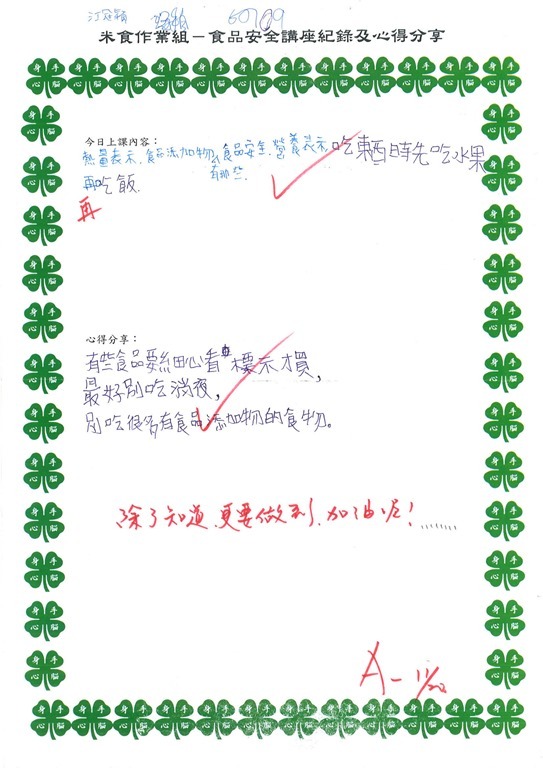 米食作業組－食品安全講座紀錄及心得分享
今日上課內容：
熱量表示、食品添加物有那些、食品安全、營養表示、吃東西時先吃水果
再吃飯
再
心得分享：
有些食品要細心看標示才買，
最好別吃消夜，
別吃很多有食品添加物的食物。
除了知道，更要做到，加油呢！
A－ 11/22
身 手 心 腦